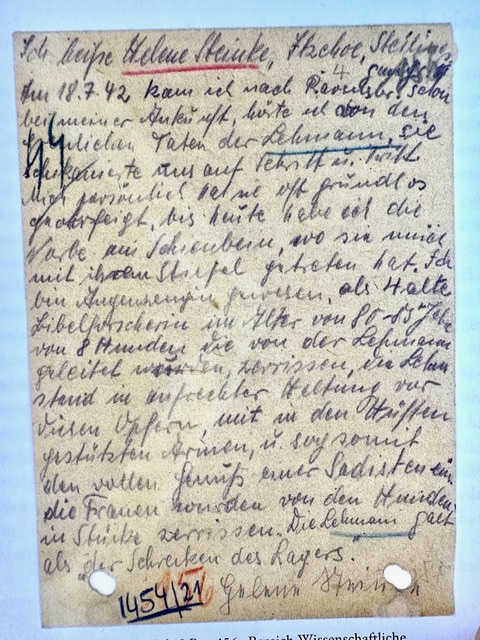 Ich heiße Helene Steinke, Itzehoe,
4
Am 18.7.42 kam ich nach Ravensbr. schon
bei meiner Ankunft, hörte ich von den
Taten der Lehmann, sie
schikanierte uns auf Schritt u. Tritt.
Mich persönlich hat sie oft grundlos
geohrfeigt, bis heute habe ich die
Narbe am Schienbein, wo sie mich
mit ihrem Stiefel getreten hat. Ich
bin Augenzeugin gewesen, als 4 alte
Bibelforscherin im Alter von 80-85 Jahre
von 8 Hunden die von der Lehmann
geleitet wurden, zerrissen, die Lehm
stand in aufrechter Haltung vor
diesen Opfern, mit in den Hüften
gestützten Armen, u. sog somit
den vollen Genuß einer Sadisten ein.
die Frauen wurden von den Hunden
in Stücke zerrissen. Die Lehmann galt
als „der Schrecken des Lagers".
1454/21
Helene Steinke
Bereich Wissenschaftliche